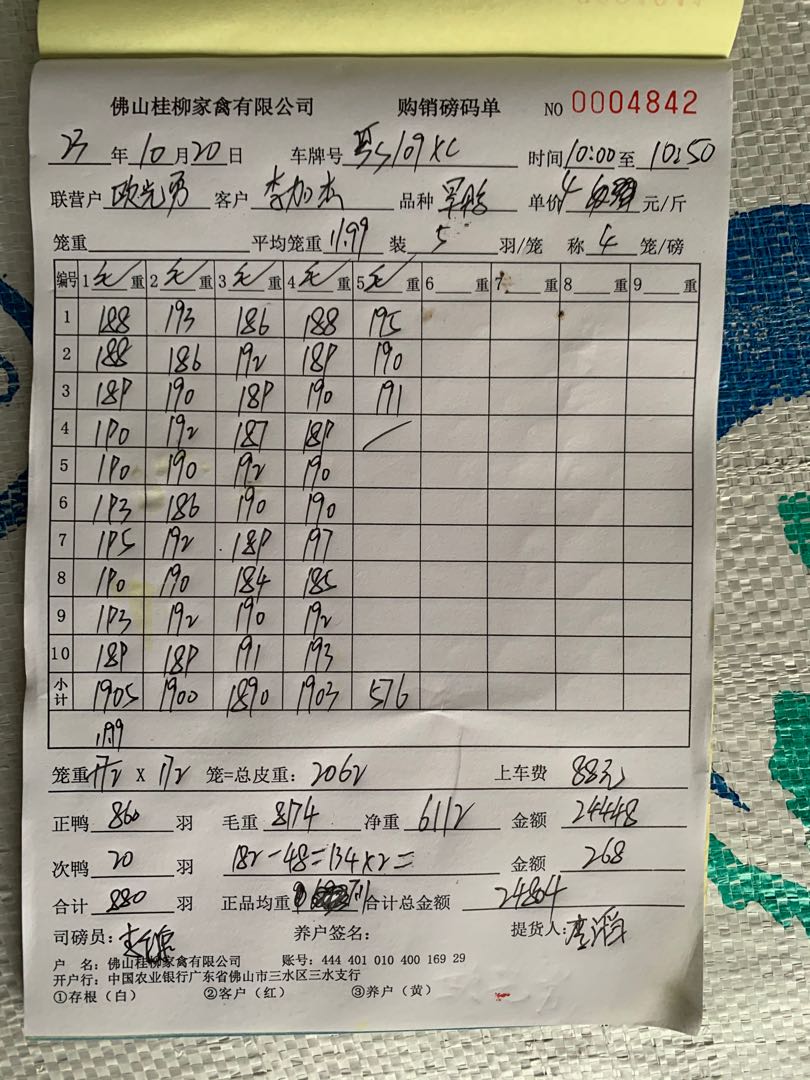 佛山桂柳家禽有限公司 购销磅码单 NO 0004842
23 年 10 月 20 日 车牌号 粤S109XC 时间 10:00 至 10:50
联营户 欧先勇 客户 李加杰 品种 单价 4 元/斤
笼重 平均笼重 11.99 装 5 羽/笼 称 4 笼/磅
编号 1 毛 重 2 毛 重 3 毛 重 4 毛 重 5 毛 重 6 重 7 重 8 重 9 重
1 188 193 186 188 195
2 188 186 192 189 190
3 189 190 189 190 191
4 190 192 187 189 /
5 190 190 192 190
6 193 186 190 190
7 195 192 189 197
8 190 190 184 185
9 193 192 190 192
10 189 189 191 193
小计 1905 1900 1890 1903 576
11.99
笼重 172 X 172 笼=总皮重: 2062 上车费 88元
正鸭 860 羽 毛重 8174 净重 6112 金额 24448
次鸭 20 羽 182-48=134×2= 金额 268
合计 880 羽 正品均重 7.11 合计总金额 24804
司磅员: 养户签名: 提货人:
户 名: 佛山桂柳家禽有限公司 账号: 444 401 010 400 169 29
开户行: 中国农业银行广东省佛山市三水区三水支行
①存根(白) ②客户(红) ③养户(黄)